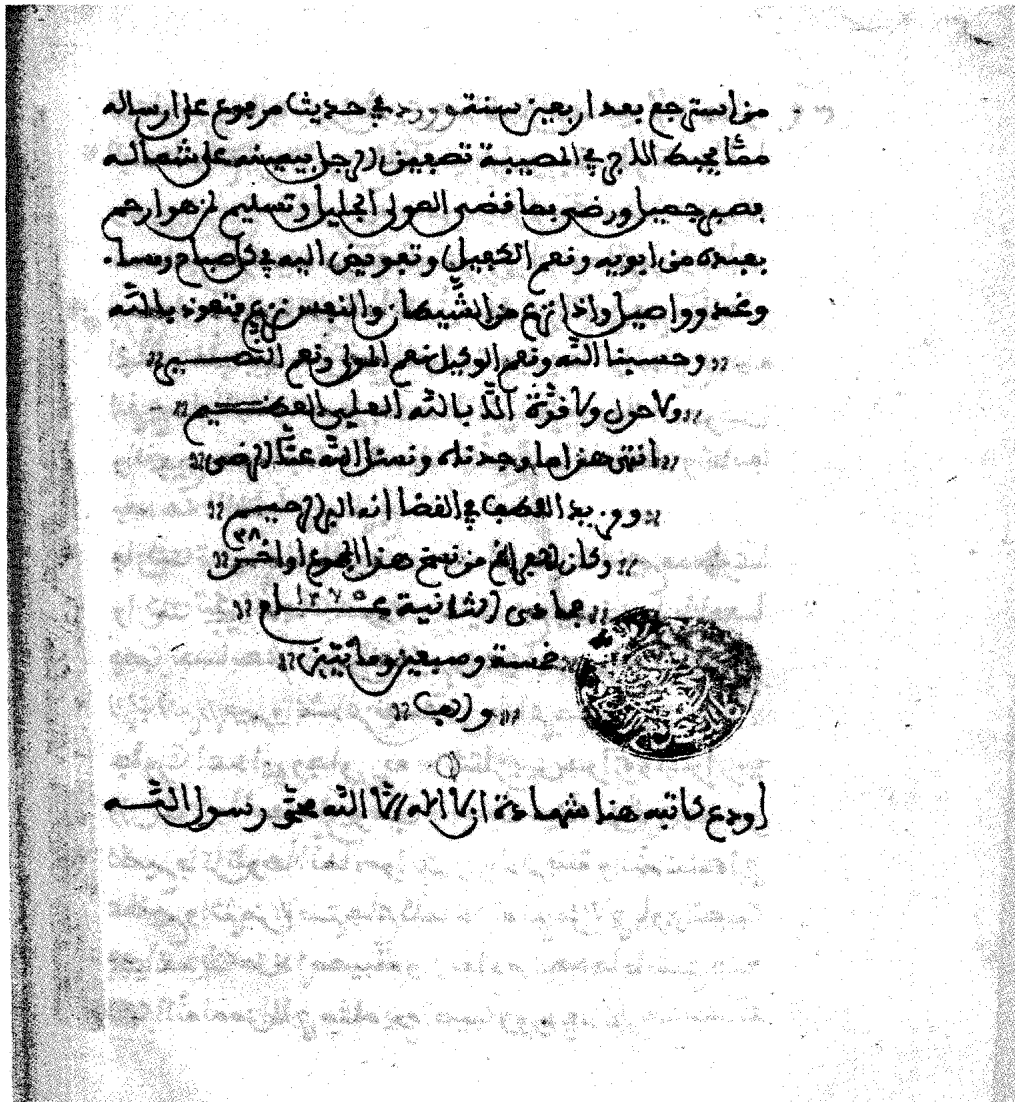 من استرجع بعد اربعين سنة وورد في حديث مرفوع على ارساله
ممّا يحبط الاجر في المصيبة تصفيق الرجل بيمينه على شماله
بصبر جميل ورضى بما قضى المولى الجليل وتسليم لمن هو ارحم
بعبده من ابويه ونعم الكفيل وتفويض اليه في كل صباح ومساء
وغدو واصيل واذا نزغ من الشّيطان والنفس نزغ فتعوذ بالله
وحسبنا الله ونعم الوكيل نعم المولى ونعم النصير
ولا حول ولا قوّة الّا بالله العلي العظيم
انتهى هذا ما وجدته ونسئل الله عنّا الرضى
ومزيد اللطف في القضا انه البر الرحيم
وكان الفراغ من نسخ هذا المجموع اواخر ٢٨
جمادى الثانية عام ١٢٧٥
خمسة وسبعين ومائتين
والف
اودع كاتبه هنا شهادة ان لا اله الّا الله محمّد رسول الله